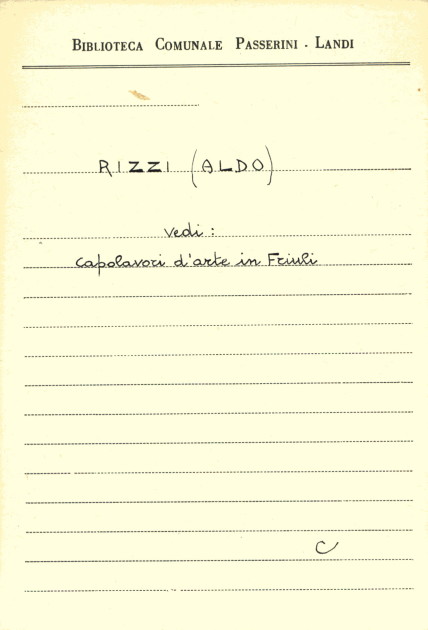 BIBLIOTECA COMUNALE PASSERINI - LANDI
RIZZI (ALDO)
vedi:
capolavori d'arte in Friuli
C